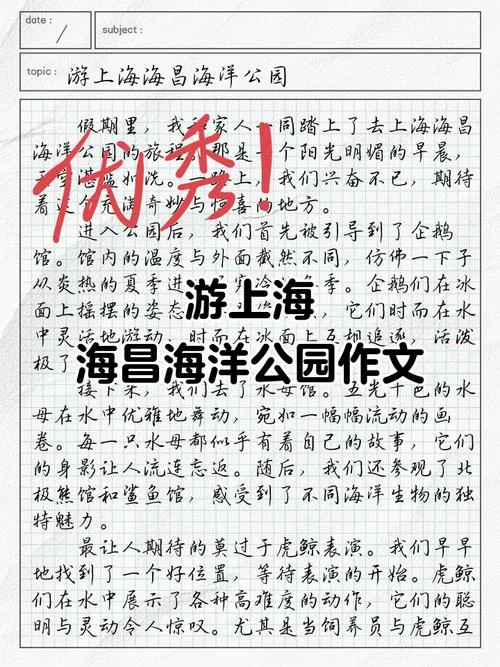 date :
subject:
topic: 游上海海昌海洋公园
假期里，我和家人一同踏上了去上海海昌
海洋公园的旅程。那是一个阳光明媚的早晨，
湛蓝如洗。一路上，我们兴奋不已，期待
着这个充满奇妙与惊喜的地方。
优秀！
进入公园后，我们首先被引导到了企鹅
馆。馆内的温度与外面截然不同，仿佛一下子
从炎热的夏季进
季。企鹅们在冰
面上摇摆的姿态
，它们时而在水
中灵活地游动，时而在冰面上互相追逐，活泼
极了
游上海
海昌海洋公园作文
接下来，我们去了水母馆。五光十色的水
母在水中优雅地舞动，宛如一幅幅流动的画
卷。每一只水母都似乎有着自己的故事，它们
的身影让人流连忘返。随后，我们还参观了北
极熊馆和鲨鱼馆，感受到了不同海洋生物的独
特魅力。
最让人期待的莫过于虎鲸表演。我们早早
地找到了一个好位置，等待表演的开始。虎鲸
们在水中展示了各种高难度的动作，它们的聪
明与灵动令人惊叹。尤其是当饲养员与虎鲸互